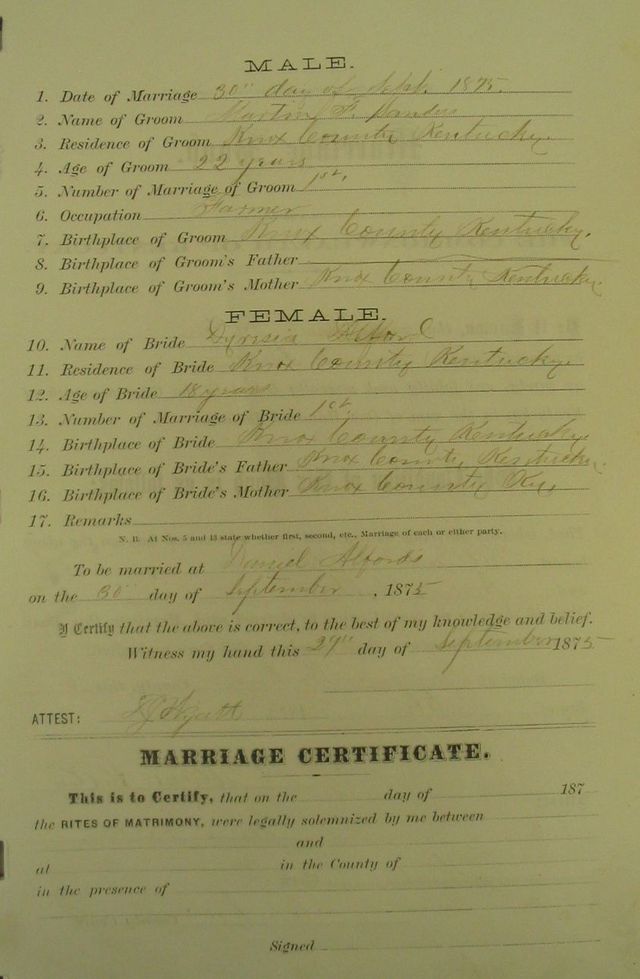 MALE.
1. Date of Marriage 30" day of Sept. 1875.
2. Name of Groom Martin F.
3. Residence of Groom Knox County Kentucky.
4. Age of Groom 22 years
5. Number of Marriage of Groom 1st.
6. Occupation Farmer
7. Birthplace of Groom Knox County Kentucky.
8. Birthplace of Groom's Father
9. Birthplace of Groom's Mother Knox County Kentucky.
FEMALE.
10. Name of Bride
11. Residence of Bride Knox County Kentucky.
12. Age of Bride 18 years
13. Number of Marriage of Bride 1st.
14. Birthplace of Bride Knox County Kentucky
15. Birthplace of Bride's Father Knox County Kentucky.
16. Birthplace of Bride's Mother Knox County Ky,
17. Remarks
N. B. At Nos. 5 and 13 state whether first, second, etc., Marriage of each or either party.
To be married at Daniel Alfords
on the 30" day of September, 1875
I Certify that the above is correct, to the best of my knowledge and belief.
Witness my hand this 29" day of September 1875
ATTEST: Wyatt
MARRIAGE CERTIFICATE.
This is to Certify, that on the day of 187
the RITES OF MATRIMONY, were legally solemnized by me between
and
at in the County of
in the presence of
Signed